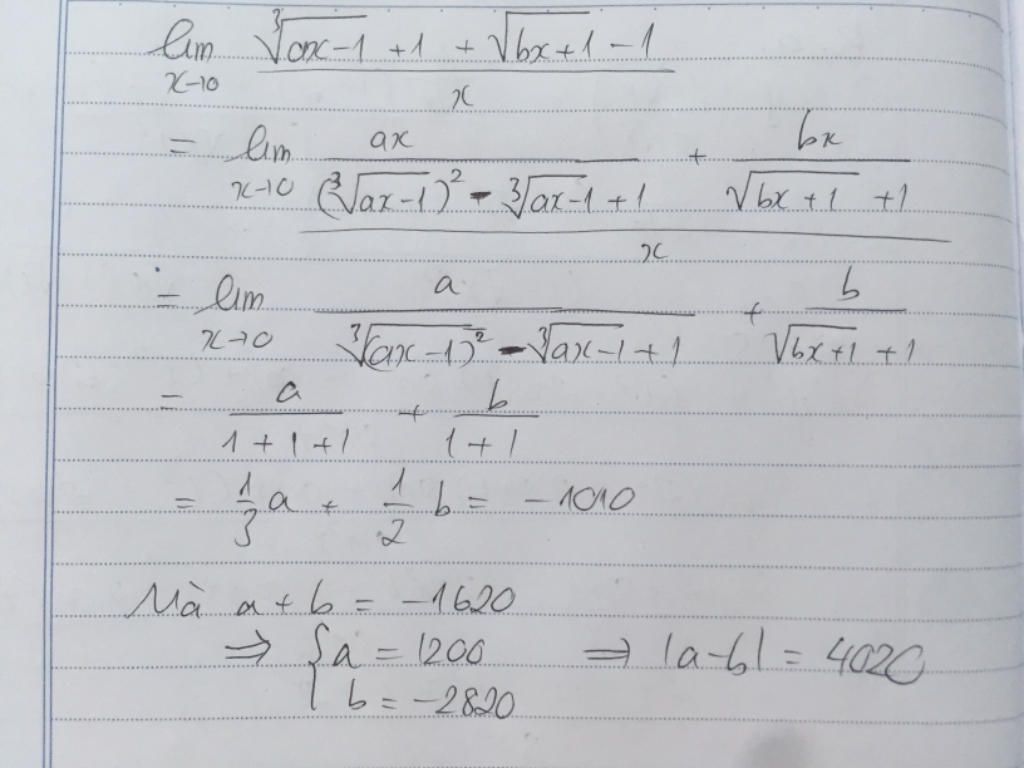 lim x→0 (∛(ax-1) + 1 + √(bx+1) - 1) / x
= lim x→0 (ax / ((∛(ax-1))² - ∛(ax-1) + 1) + bx / (√(bx+1) + 1)) / x
= lim x→0 a / (∛((ax-1)²) - ∛(ax-1) + 1) + b / (√(bx+1) + 1)
= a / (1+1+1) + b / (1+1)
= 1/3 a + 1/2 b = -1010
Mà a + b = -1620
⇒ { a = 1200 ⇒ |a-b| = 4020
b = -2820